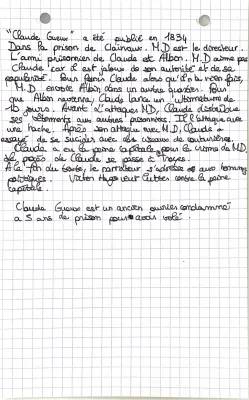 "Claude Gueux" a été publié en 1834
Dans la prison de Clairvaux. M.D est le directeur.
L'ami prisonnier de Claude et Albin. M.D aime pas
Claude car il est jaloux de son autorité et de sa
popularité. Pour Claude alors qu'il n'a rien fait,
M.D envoie Albin dans un autre quartier. Pour
que Albin revienne, Claude lance un ultimatum de
10 jours. Avant d'attaquer MD, Claude distribue
ses vêtements aux autres prisonniers. Il l'attaque avec
une hache. Après son attaque avec M.D, Claude a
essayé de se suicider avec des ciseaux de couturière.
Claude a eu la peine capitale pour le crime de MD.
Le procès de Claude se passe à Troyes.
A la fin du texte, le narrateur s'adresse aux hommes
politiques. Victor Hugo veut lutter contre la peine
capitale.
Claude Gueux est un ancien ouvrier condamné
a 5 ans de prison pour avoir volé.